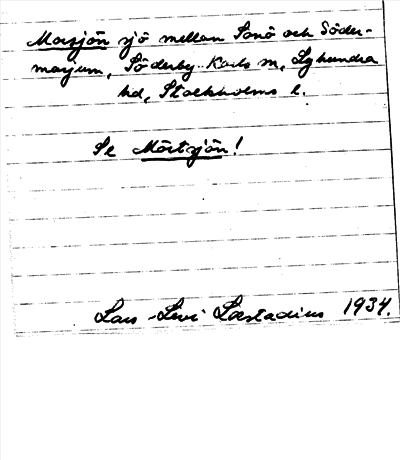 Morsjön sjö mellan Sonö och Söder-
marjum, Söderby-Karls sn, Lyhundra
hd, Stockholms l.
Se Mörtsjön!
Lars-Levi Læstadius 1934.